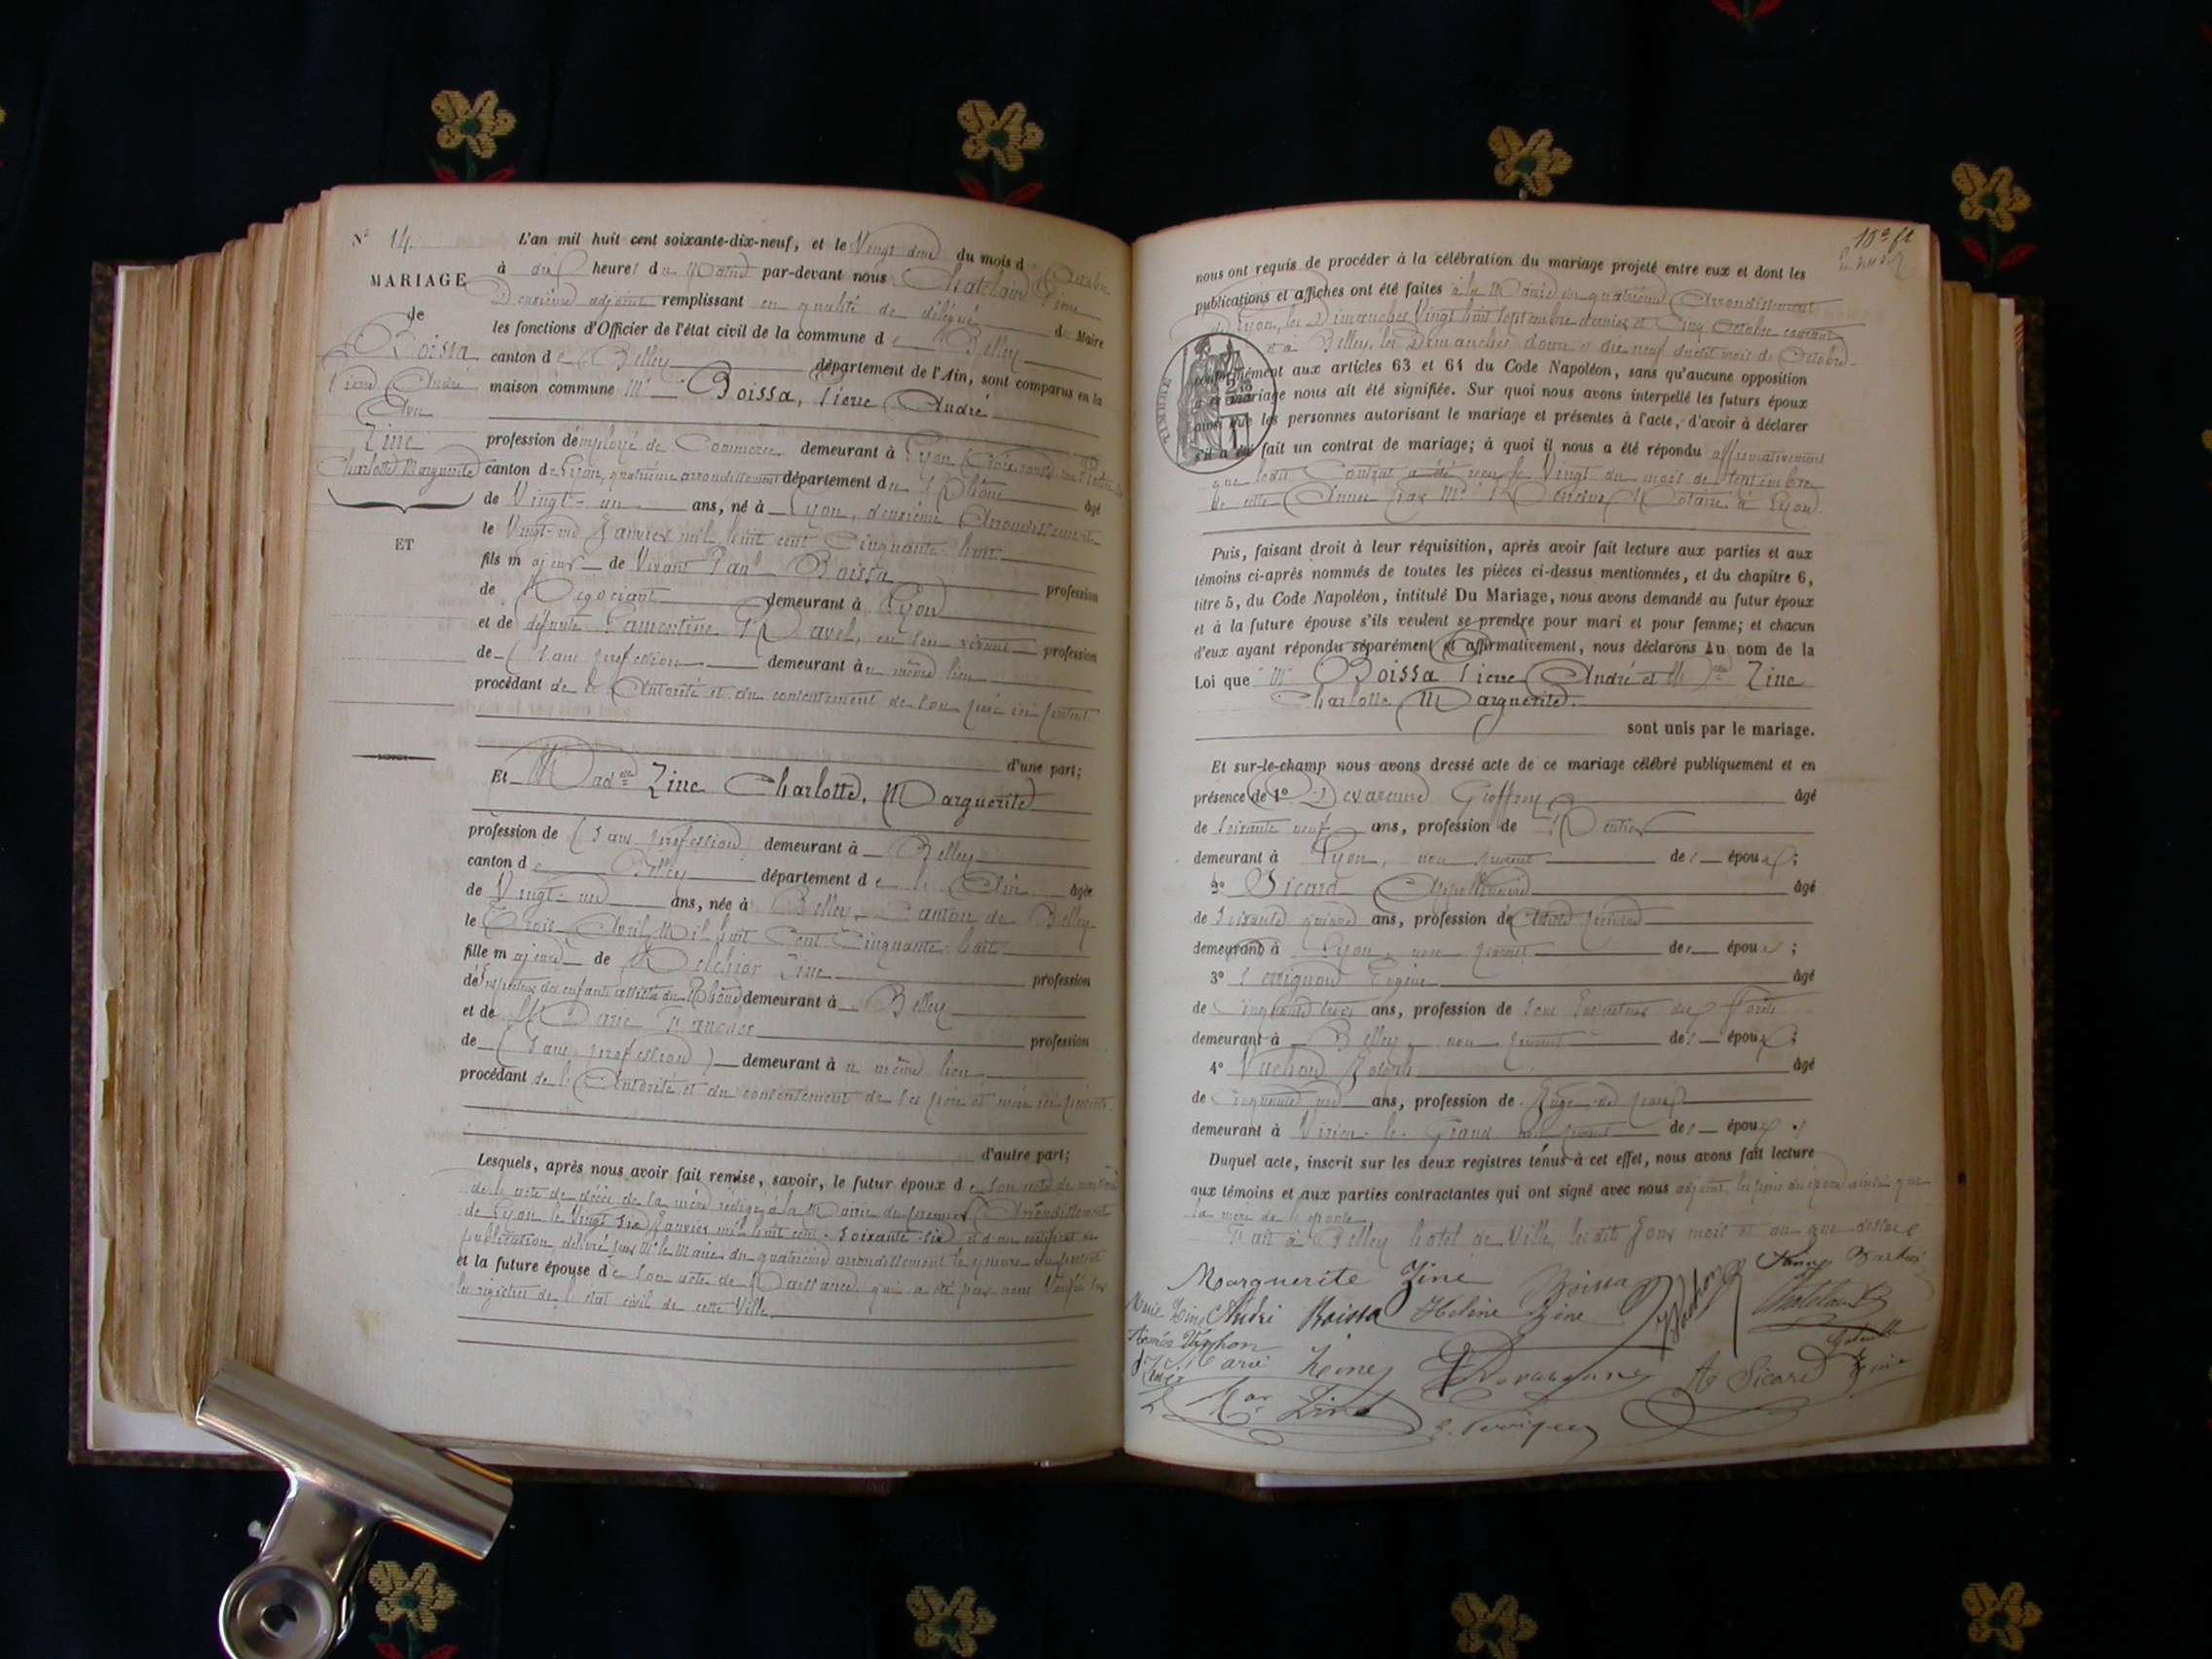 N° 14.
MARIAGE
de
Boissa
Pierre André
Avec
Zine
Charlotte Marguerite
ET
L'an mil huit cent soixante-dix-neuf, et le Vingt deux du mois d'Octobre
à dix heures du matin par-devant nous Chatelain Pierre
Deuxième adjoint remplissant en qualité de délégué du Maire
les fonctions d'Officier de l'état civil de la commune de Belley
canton de Belley département de l'Ain, sont comparus en la
maison commune Mr Boissa, Pierre André
profession d'employé de Commerce demeurant à Lyon
canton de Lyon, quatrième arrondissement département du Rhône âgé
de Vingt-un ans, né à Lyon, deuxième Arrondissement
le Vingt-neuf Janvier mil huit cent Cinquante-huit
fils majeur de Vivant Paul Boissa profession
de Négociant demeurant à Lyon
et de défunte Ravel, en son vivant profession
de (sans profession demeurant au même lieu
procédant de l'Autorité et du consentement de son père ici présent
d'une part;
Et Madelle Zine Charlotte, Marguerite
profession de (sans profession) demeurant à Belley
canton de Belley département de l'Ain âgée
de Vingt-un ans, née à Belley, Canton de Belley
le Trois Avril Mil huit Cent Cinquante-huit
fille majeure de Melchior Zine profession
d'Inspecteur des enfants assistés du Rhône demeurant à Belley
et de Marie profession
de (sans profession) demeurant au même lieu
procédant de l'Autorité et du consentement de ses père et mère ici présents
d'autre part;
Lesquels, après nous avoir fait remise, savoir, le futur époux de son acte de naissance
de l'acte de décès de sa mère rédigé à la Mairie du premier Arrondissement
de Lyon le Vingt six Janvier mil huit cent soixante-six et d'un certificat de
publication, délivré par Mr le Maire du quatrième arrondissement le quinze du présent
et la future épouse de son acte de Naissance qui a été par nous Vérifié sur
les registres de l'état civil de cette Ville
nous ont requis de procéder à la célébration du mariage projeté entre eux et dont les
publications et affiches ont été faites à la Mairie du quatrième Arrondissement
de Lyon, les Dimanches Vingt huit septembre dernier et Cinq Octobre courant
et à Belley, les Dimanches douze et dix neuf dudit mois de Octobre
conformément aux articles 63 et 64 du Code Napoléon, sans qu'aucune opposition
à ce mariage nous ait été signifiée. Sur quoi nous avons interpellé les futurs époux
ainsi que les personnes autorisant le mariage et présentes à l'acte, d'avoir à déclarer
s'il a été fait un contrat de mariage; à quoi il nous a été répondu affirmativement
que ledit Contrat a été reçu le Vingt du mois de Septembre
de cette Année par Me Notaire à Lyon.
TIMBRE
Puis, faisant droit à leur réquisition, après avoir fait lecture aux parties et aux
témoins ci-après nommés de toutes les pièces ci-dessus mentionnées, et du chapitre 6,
titre 5, du Code Napoléon, intitulé Du Mariage, nous avons demandé au futur époux
et à la future épouse s'ils veulent se prendre pour mari et pour femme; et chacun
d'eux ayant répondu séparément et affirmativement, nous déclarons au nom de la
Loi que Mr Boissa Pierre André et Melle Zine
Charlotte Marguerite.
sont unis par le mariage.
Et sur-le-champ nous avons dressé acte de ce mariage célébré publiquement et en
présence de 1° Devarenne Geoffroy âgé
de soixante neuf ans, profession de Rentier
demeurant à Lyon, non parent des époux;
2° Sicard Appollinaire âgé
de soixante quinze ans, profession d'Artiste peintre
demeurant à Lyon, non parent des époux;
3° Perrignon Eugène âgé
de Cinquante trois ans, profession de sous Inspecteur des Forêts
demeurant à Belley, non parent des époux;
4° Vuchon Joseph âgé
de ans, profession de Juge de paix
demeurant à Virieu-le-Grand non parent des époux.
Duquel acte, inscrit sur les deux registres tenus à cet effet, nous avons fait lecture
aux témoins et aux parties contractantes qui ont signé avec nous adjoint, les pères des époux ainsi que
la mère de l'épouse
Fait à Belley hotel de Ville, lesdits jour mois et an que dessus
Marguerite Zine Boissa
Marie Zine André Boissa Helène Zine Chatelain
Marie Zine Devarenne A Sicard
Mor Zine